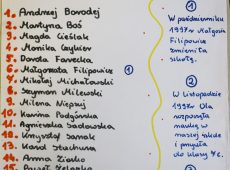 1. Andrzej Borodej
2. Martyna Boś
3. Magda Cieślak
4. Monika Cykier
5. Dorota Farecka
6. Małgorzata Filipowicz ①
7. Mikołaj Michałowski
8. Szymon Milewski
9. Milena Nieznaj
10. Karina Podgórska
11. Agnieszka Sadowska
12. Krzysztof Sanak
13. Karol Stachura
14. Anna Ziarko
15. Paweł Żelazko
①
W październiku
1997 r Małgosia
Filipowicz
zmieniła
szkołę.
②
W listopadzie
1997r. Ola
rozpoczęła
naukę w
naszej szkole
i przyszła
do klasy